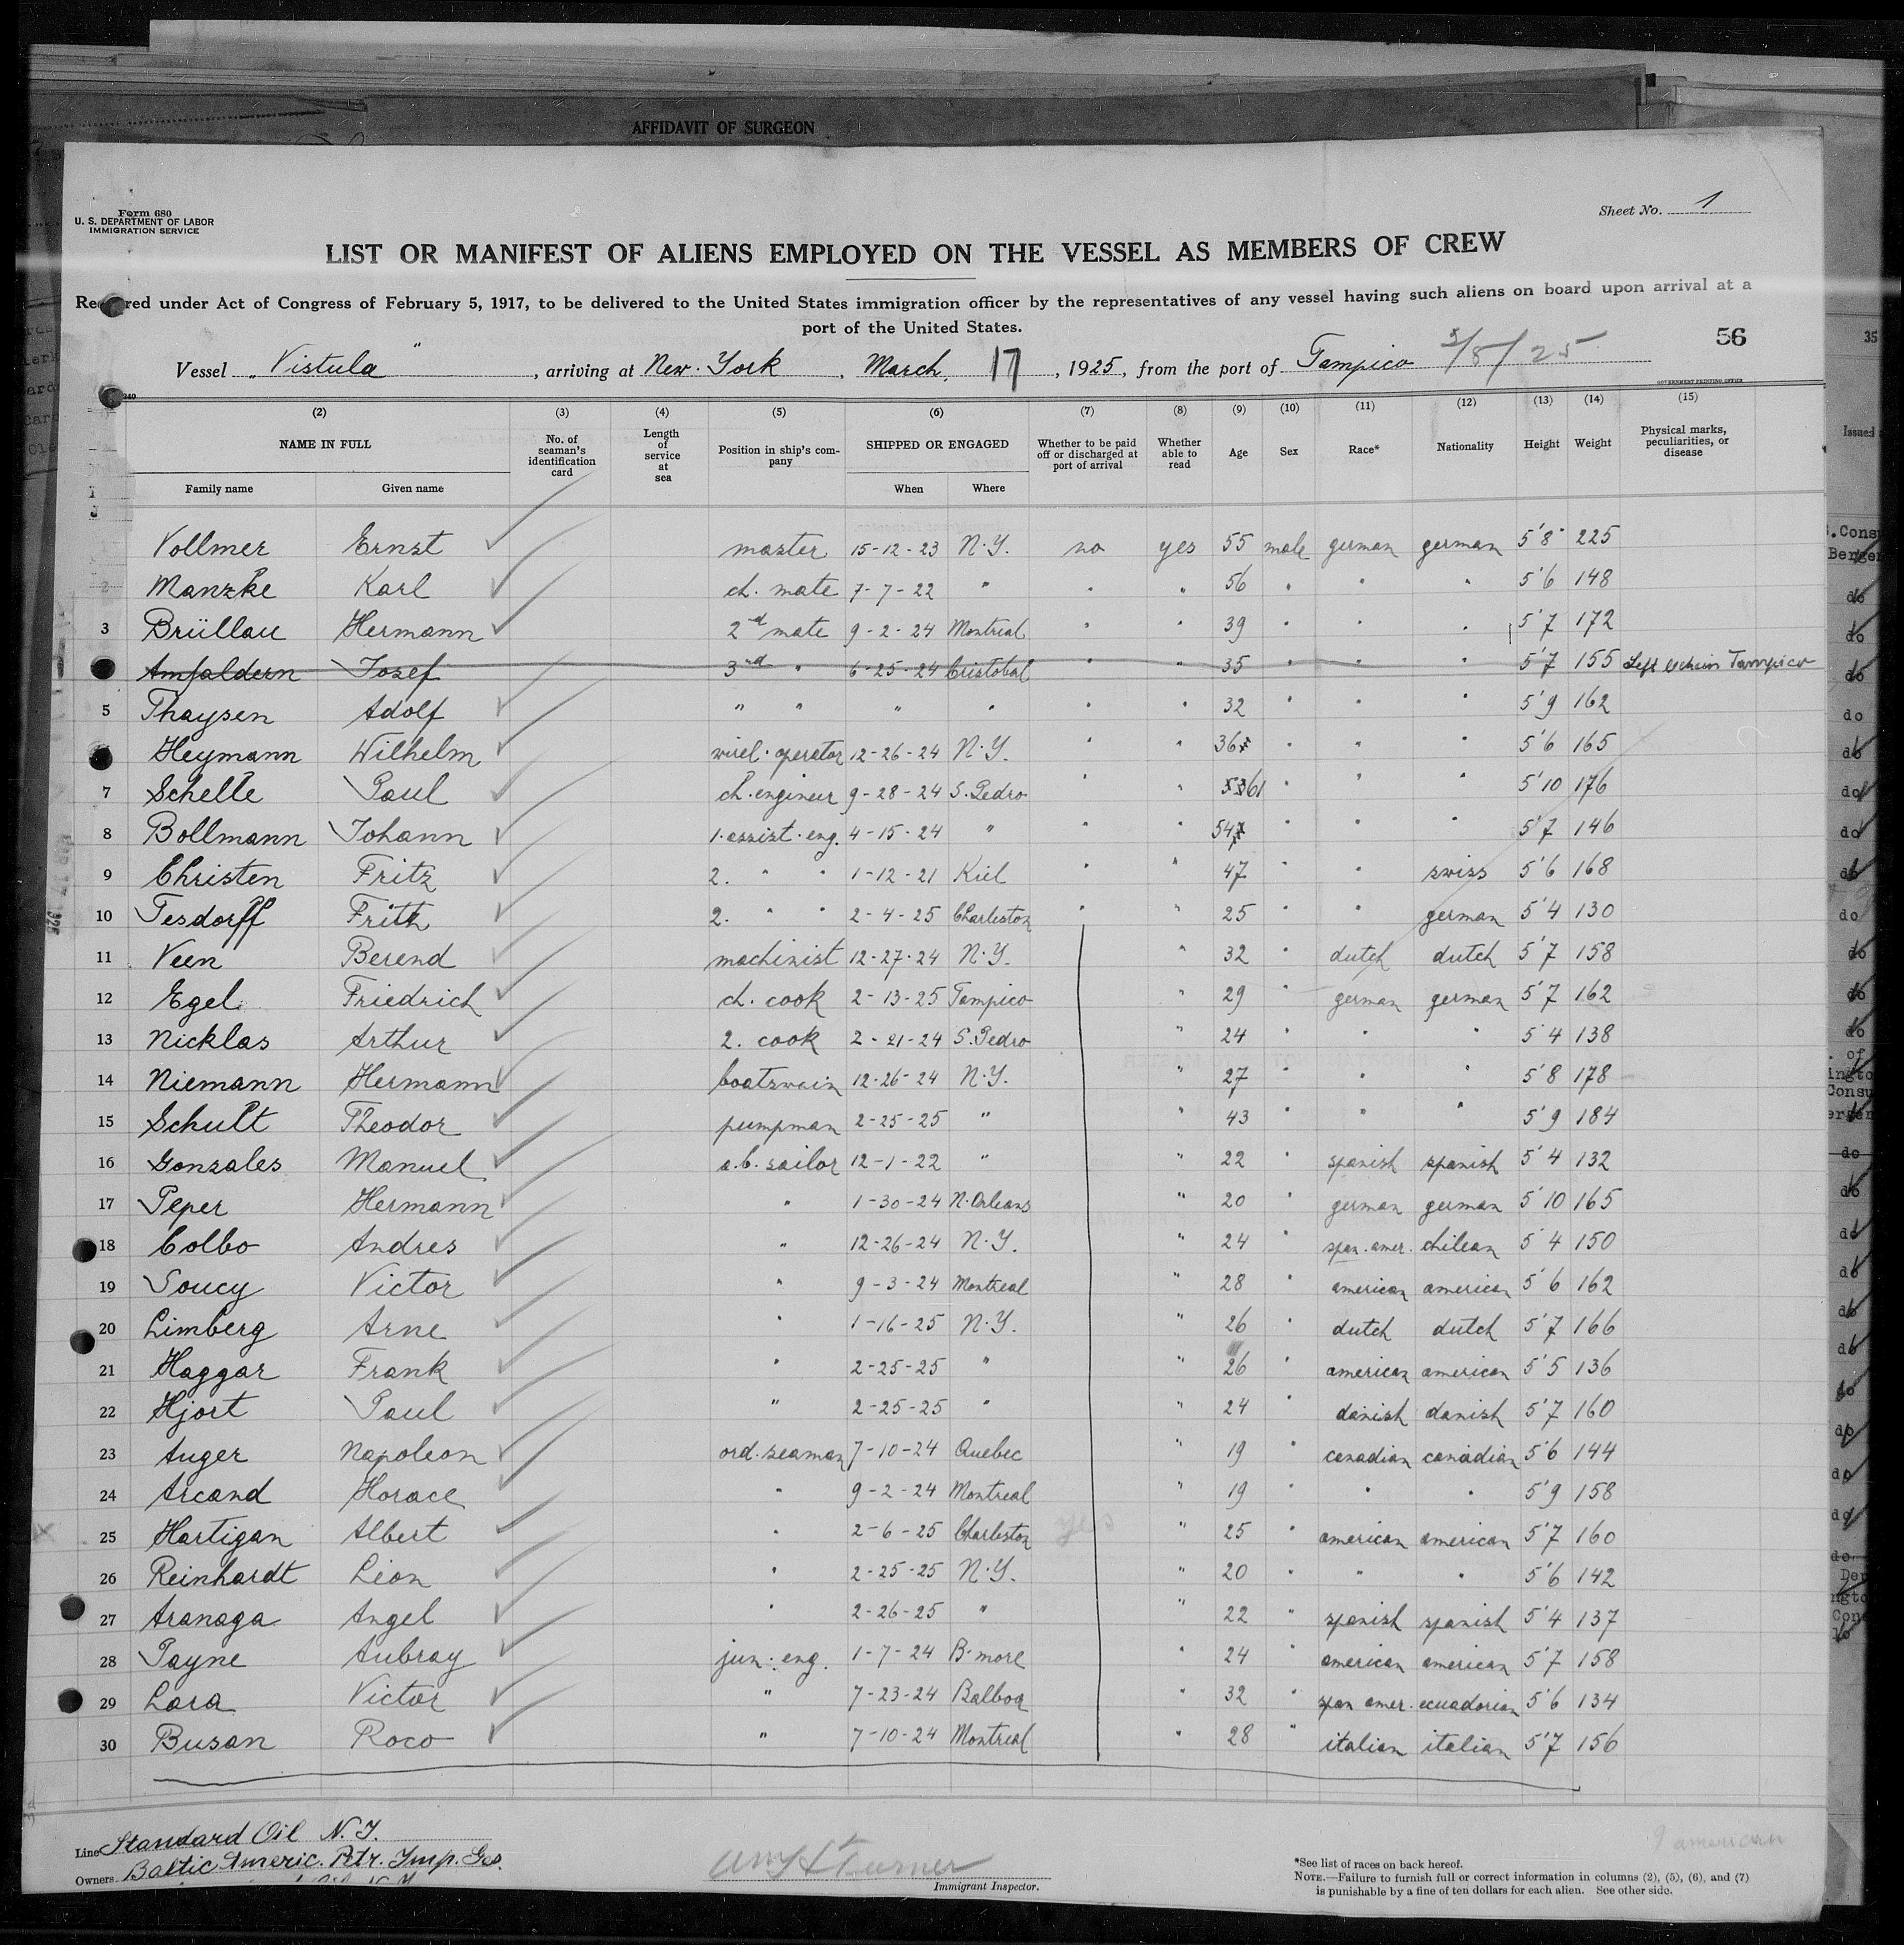 AFFIDAVIT OF SURGEON
Form 680
U. S. DEPARTMENT OF LABOR
IMMIGRATION SERVICE
Sheet No. 1
LIST OR MANIFEST OF ALIENS EMPLOYED ON THE VESSEL AS MEMBERS OF CREW
Required under Act of Congress of February 5, 1917, to be delivered to the United States immigration officer by the representatives of any vessel having such aliens on board upon arrival at a
port of the United States.
56
Vessel "Vistula", arriving at New York, March 17, 1925, from the port of Tampico 3/8/25
GOVERNMENT PRINTING OFFICE
(2) (3) (4) (5) (6) (7) (8) (9) (10) (11) (12) (13) (14) (15)
NAME IN FULL No. of seaman's identification card Length of service at sea Position in ship's company SHIPPED OR ENGAGED Whether to be paid off or discharged at port of arrival Whether able to read Age Sex Race* Nationality Height Weight Physical marks, peculiarities, or disease
Family name Given name When Where
Vollmer Ernst master 15-12-23 N.Y. no yes 55 male german german 5'8" 225
2 Manzke Karl ch. mate 7-7-22 " " " 56 " " " 5'6 148
3 Brüllau Hermann 2nd mate 9-2-24 Montreal " " 39 " " " 5'7 172
Amfaldern Josef 3rd " 6-25-24 Cristobal " " 35 " " " 5'7 155 Left Tampico
5 Thaysen Adolf " " " " " " 32 " " " 5'9 162
Heymann Wilhelm wirel. operator 12-26-24 N.Y. " " 36 " " " 5'6 165
7 Schelle Paul ch. engineer 9-28-24 S. Pedro " " 61 " " " 5'10 176
8 Bollmann Johann 1. assist. eng. 4-15-24 " " " 54 " " " 5'7 146
9 Christen Fritz 2. " " 1-12-21 Kiel " " 47 " " swiss 5'6 168
10 Tesdorff Frith 2. " " 2-4-25 Charleston " " 25 " " german 5'4 130
11 Veen Berend machinist 12-27-24 N.Y. " 32 " dutch dutch 5'7 158
12 Egel Friedrich ch. cook 2-13-25 Tampico " 29 " german german 5'7 162
13 Nicklas Arthur 2. cook 2-21-24 S. Pedro " 24 " " " 5'4 138
14 Niemann Hermann boatswain 12-26-24 N.Y. " 27 " " " 5'8 178
15 Schult Theodor pumpman 2-25-25 " " 43 " " " 5'9 184
16 Gonzales Manuel a.b. sailor 12-1-22 " " 22 " spanish spanish 5'4 132
17 Peper Hermann " 1-30-24 N. Orleans " 20 german german 5'10 165
18 Colbo Andres " 12-26-24 N.Y. " 24 " span. amer. chilean 5'4 150
19 Soucy Victor " 9-3-24 Montreal " 28 " american american 5'6 162
20 Limberg Arne " 1-16-25 N.Y. " 26 " dutch dutch 5'7 166
21 Haggar Frank " 2-25-25 " " 26 " american american 5'5 136
22 Hjort Paul " 2-25-25 " " 24 " danish danish 5'7 160
23 Auger Napoleon ord. seaman 7-10-24 Quebec " 19 " canadian canadian 5'6 144
24 Arcand Horace " 9-2-24 Montreal " 19 " " " 5'9 158
25 Hartigan Albert " 2-6-25 Charleston yes " 25 " american american 5'7 160
26 Reinhardt Leon " 2-25-25 N.Y. " 20 " " " 5'6 142
27 Aranaga Angel " 2-26-25 " " 22 " spanish spanish 5'4 137
28 Payne Aubray jun. eng. 1-7-24 B-more " 24 " american american 5'7 158
29 Lara Victor " 7-23-24 Balboa " 32 " span amer. ecuadorian 5'6 134
30 Busan Roco " 7-10-24 Montreal " 28 " italian italian 5'7 156
Line Standard Oil N.J.
Owners Baltic Americ. Petr. Imp. Ges.
9 american
Turner
Immigrant Inspector.
*See list of races on back hereof.
NOTE.—Failure to furnish full or correct information in columns (2), (5), (6), and (7)
is punishable by a fine of ten dollars for each alien. See other side.